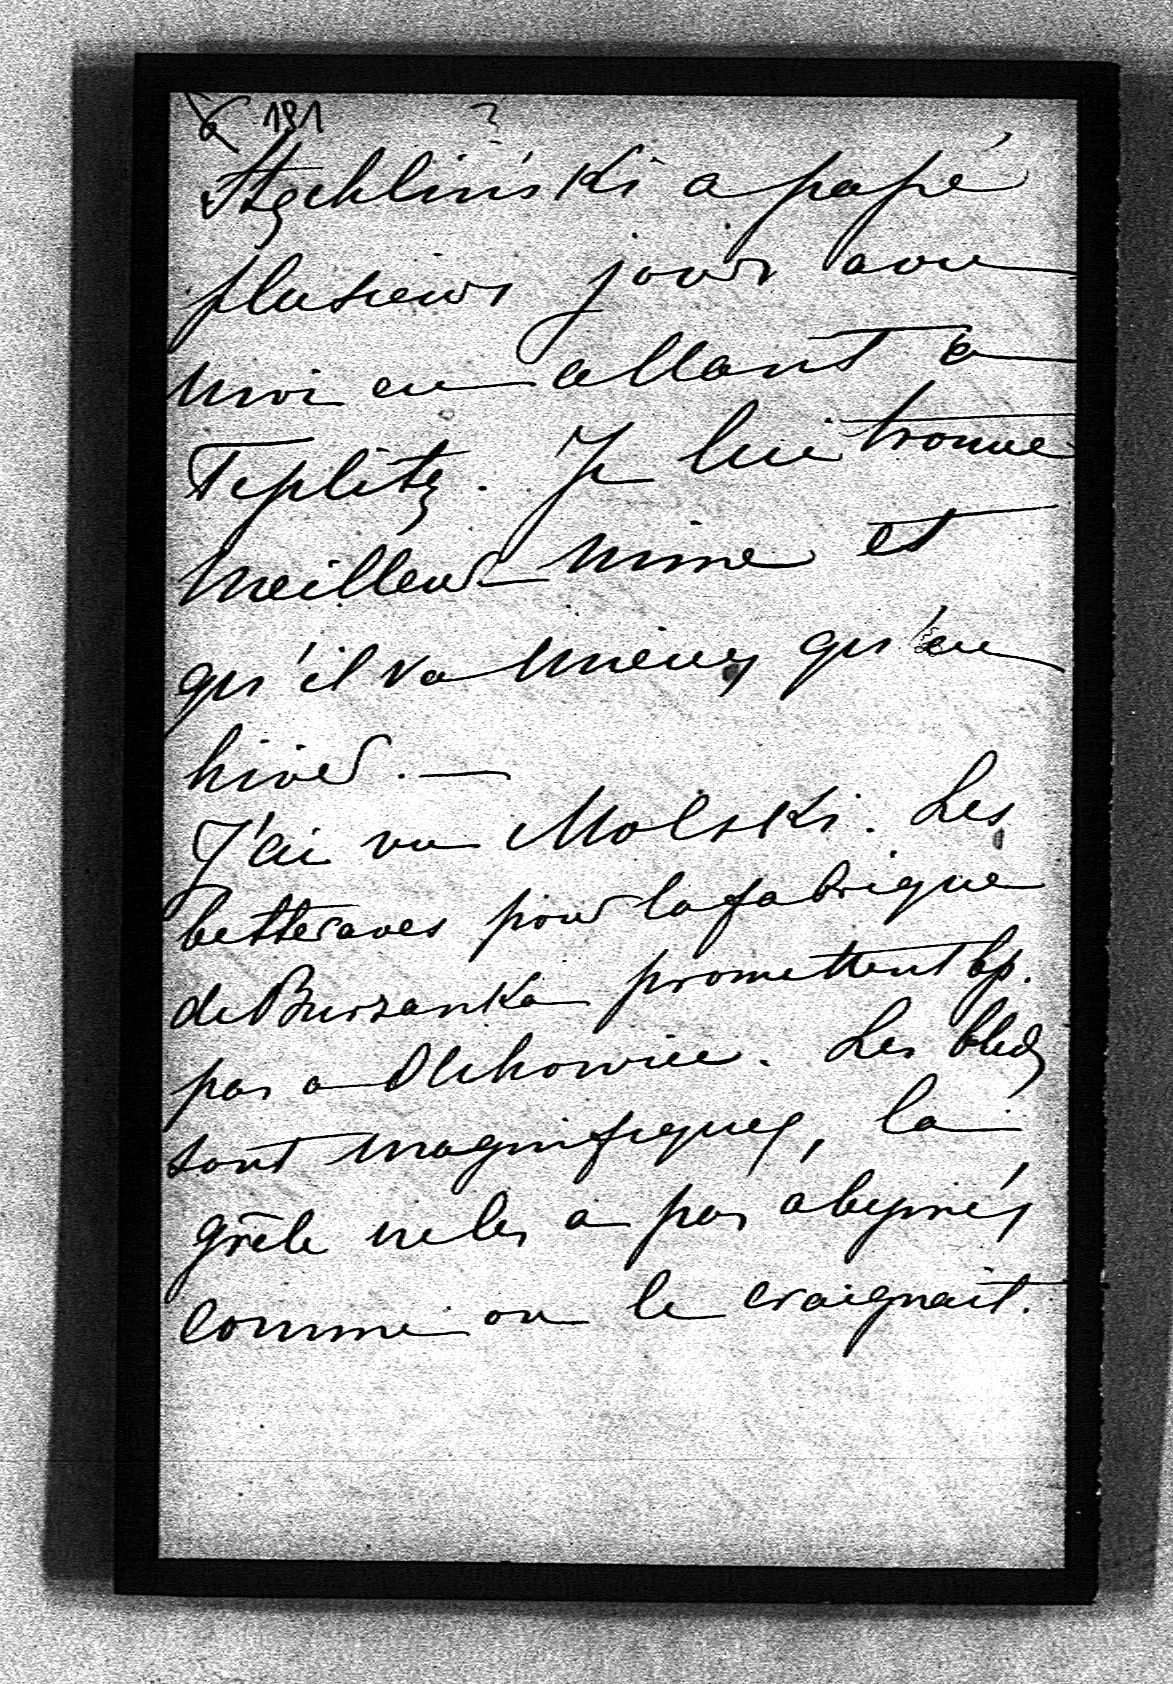 191 ?
Stęchliński a passé
plusieurs jours avec
moi en allant à
Teplitz. Je lui trouve
meilleur mine et
qu'il va mieux qu'en
hiver. —
J'ai vu Molski. Les
betteraves pour la fabrique
de Burzanka promettent bp.
pas a Olchowiec. Les bleds
sont magnifiques, la
grêle ne les a pas abymés
comme on le craignait.